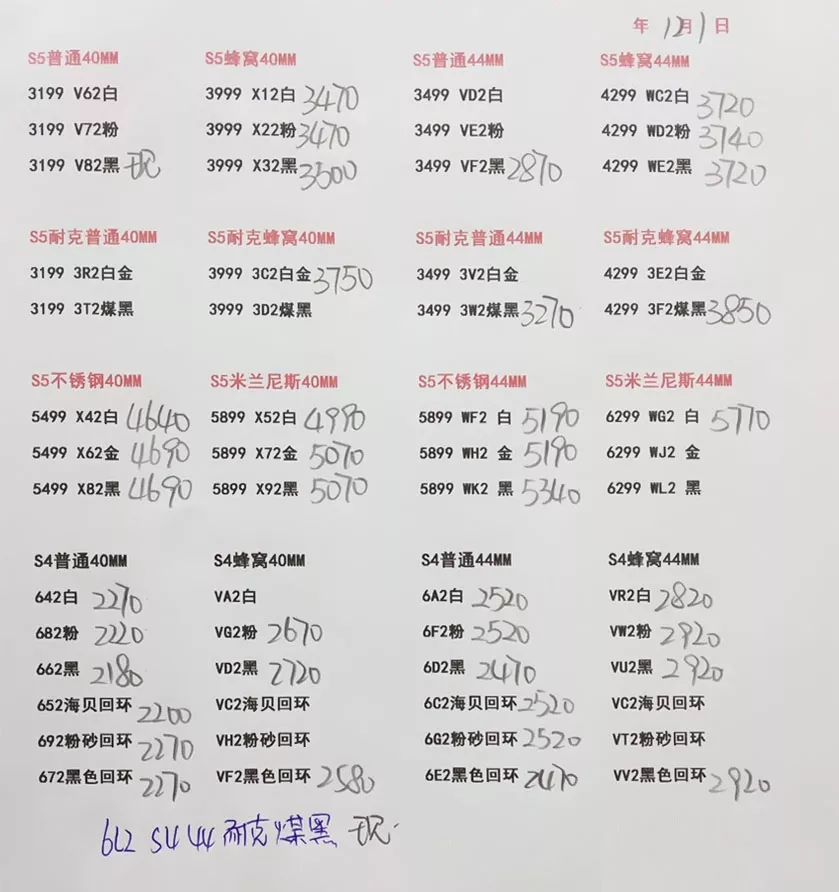 年 12月1日
S5普通40MM S5蜂窝40MM S5普通44MM S5蜂窝44MM
3199 V62白 3999 X12白 3470 3499 VD2白 4299 WC2白 3720
3199 V72粉 3999 X22粉 3470 3499 VE2粉 4299 WD2粉 3740
3199 V82黑 现 3999 X32黑 3500 3499 VF2黑 2870 4299 WE2黑 3720
S5耐克普通40MM S5耐克蜂窝40MM S5耐克普通44MM S5耐克蜂窝44MM
3199 3R2白金 3999 3C2白金 3750 3499 3V2白金 4299 3E2白金
3199 3T2煤黑 3999 3D2煤黑 3499 3W2煤黑 3270 4299 3F2煤黑 3850
S5不锈钢40MM S5米兰尼斯40MM S5不锈钢44MM S5米兰尼斯44MM
5499 X42白 4640 5899 X52白 4990 5899 WF2 白 5190 6299 WG2 白 5770
5499 X62金 4690 5899 X72金 5070 5899 WH2 金 5190 6299 WJ2 金
5499 X82黑 4690 5899 X92黑 5070 5899 WK2 黑 5340 6299 WL2 黑
S4普通40MM S4蜂窝40MM S4普通44MM S4蜂窝44MM
642白 2270 VA2白 6A2白 2520 VR2白 2820
682粉 2220 VG2粉 2670 6F2粉 2520 VW2粉 2920
662黑 2180 VD2黑 2720 6D2黑 2470 VU2黑 2920
652海贝回环 2200 VC2海贝回环 6C2海贝回环 2520 VC2海贝回环
692粉砂回环 2270 VH2粉砂回环 6G2粉砂回环 2520 VT2粉砂回环
672黑色回环 2270 VF2黑色回环 2580 6E2黑色回环 2470 VV2黑色回环 2920
6L2 S4 44 耐克煤黑 现